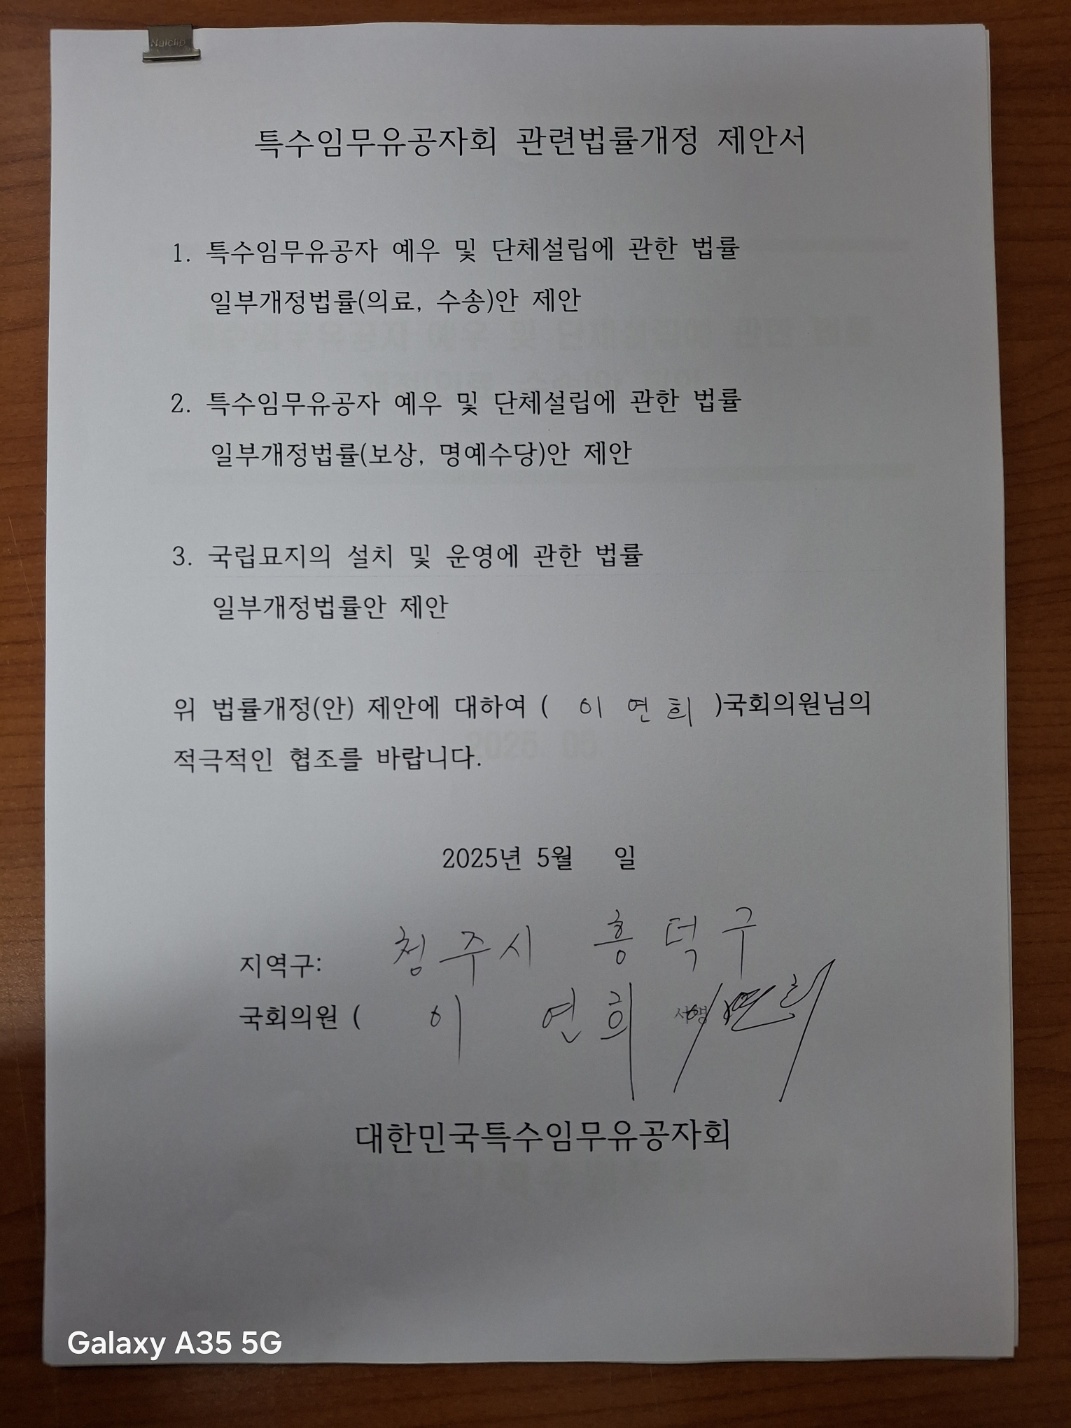 특수임무유공자회 관련법률개정 제안서
1. 특수임무유공자 예우 및 단체설립에 관한 법률
일부개정법률(의료, 수송)안 제안
2. 특수임무유공자 예우 및 단체설립에 관한 법률
일부개정법률(보상, 명예수당)안 제안
3. 국립묘지의 설치 및 운영에 관한 법률
일부개정법률안 제안
위 법률개정(안) 제안에 대하여 ( 이 연 희 )국회의원님의
적극적인 협조를 바랍니다.
2025년 5월 일
지역구: 청주시 흥덕구
국회의원 ( 이 연 희 서명 이연희
대한민국특수임무유공자회
Galaxy A35 5G